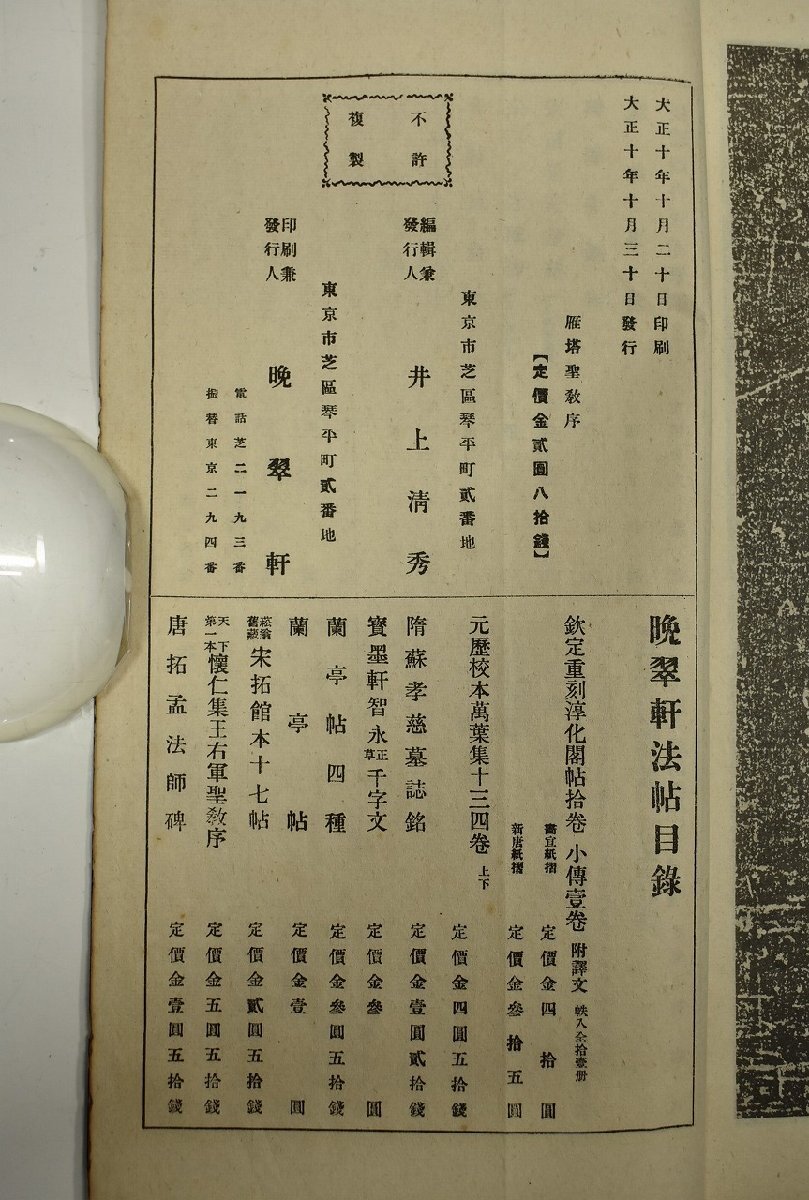 大正十年十月二十日印刷
大正十年十月三十日發行
雁塔聖教序
【定價金貳圓八拾錢】
東京市芝區琴平町貳番地
編輯兼
發行人
井上清秀
不許
複製
東京市芝區琴平町貳番地
印刷兼
發行人
晩翠軒
電話芝二一九三番
振替東京二九四番
晩翠軒法帖目錄
欽定重刻淳化閣帖拾卷 小傳壹卷 附譯文 帙入全拾壹册
畫宣紙摺 定價金四拾圓
新唐紙摺 定價金參拾五圓
元歷校本萬葉集十三四卷 上下 定價金四圓五拾錢
隋蘇孝慈墓誌銘 定價金壹圓貳拾錢
寳墨軒智永正草千字文 定價金參圓
蘭亭帖四種 定價金參圓五拾錢
蘭亭帖 定價金壹圓
崧翁舊藏宋拓館本十七帖 定價金貳圓五拾錢
天下第一本懷仁集王右軍聖教序 定價金五圓五拾錢
唐拓孟法師碑 定價金壹圓五拾錢